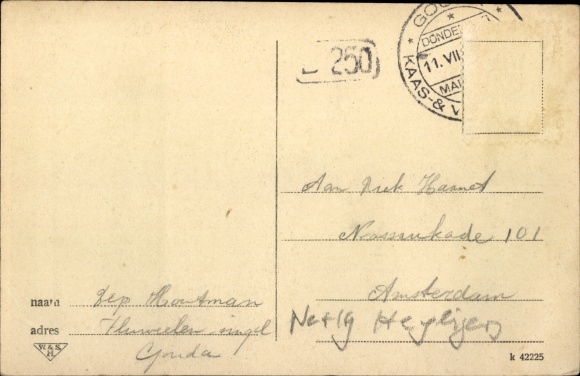 GOU
DONDE
11.VII
MA
KAAS-& V
250
Aan Piek Hannet
Nassaukade 101
Amsterdam
naam Dep Houtman
adres Fluweelen singel
Gouda
W. & S.
H.
k 42225